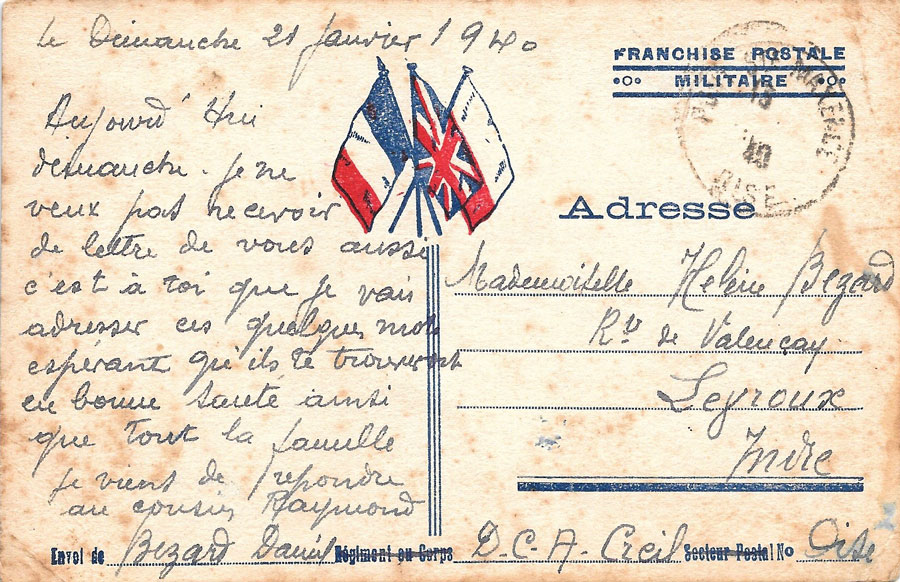 le Dimanche 21 Janvier 1940
Aujourd'Hui
dimanche. je ne
veux pas recevoir
de lettre de vous aussi
c'est à toi que je vais
adresser ces quelques mots
espérant qu'ils te trouveront
en bonne santé ainsi
que tout la famille
je viens de repondre
au cousin Raymond
FRANCHISE POSTALE
MILITAIRE
40
OISE
Adresse
Mademoiselle Helène Bezard
Rte de Valençay
Levroux
Indre
Envoi de Bezard Daniel Régiment ou Corps D.C.A. Creil Secteur Postal No Oise